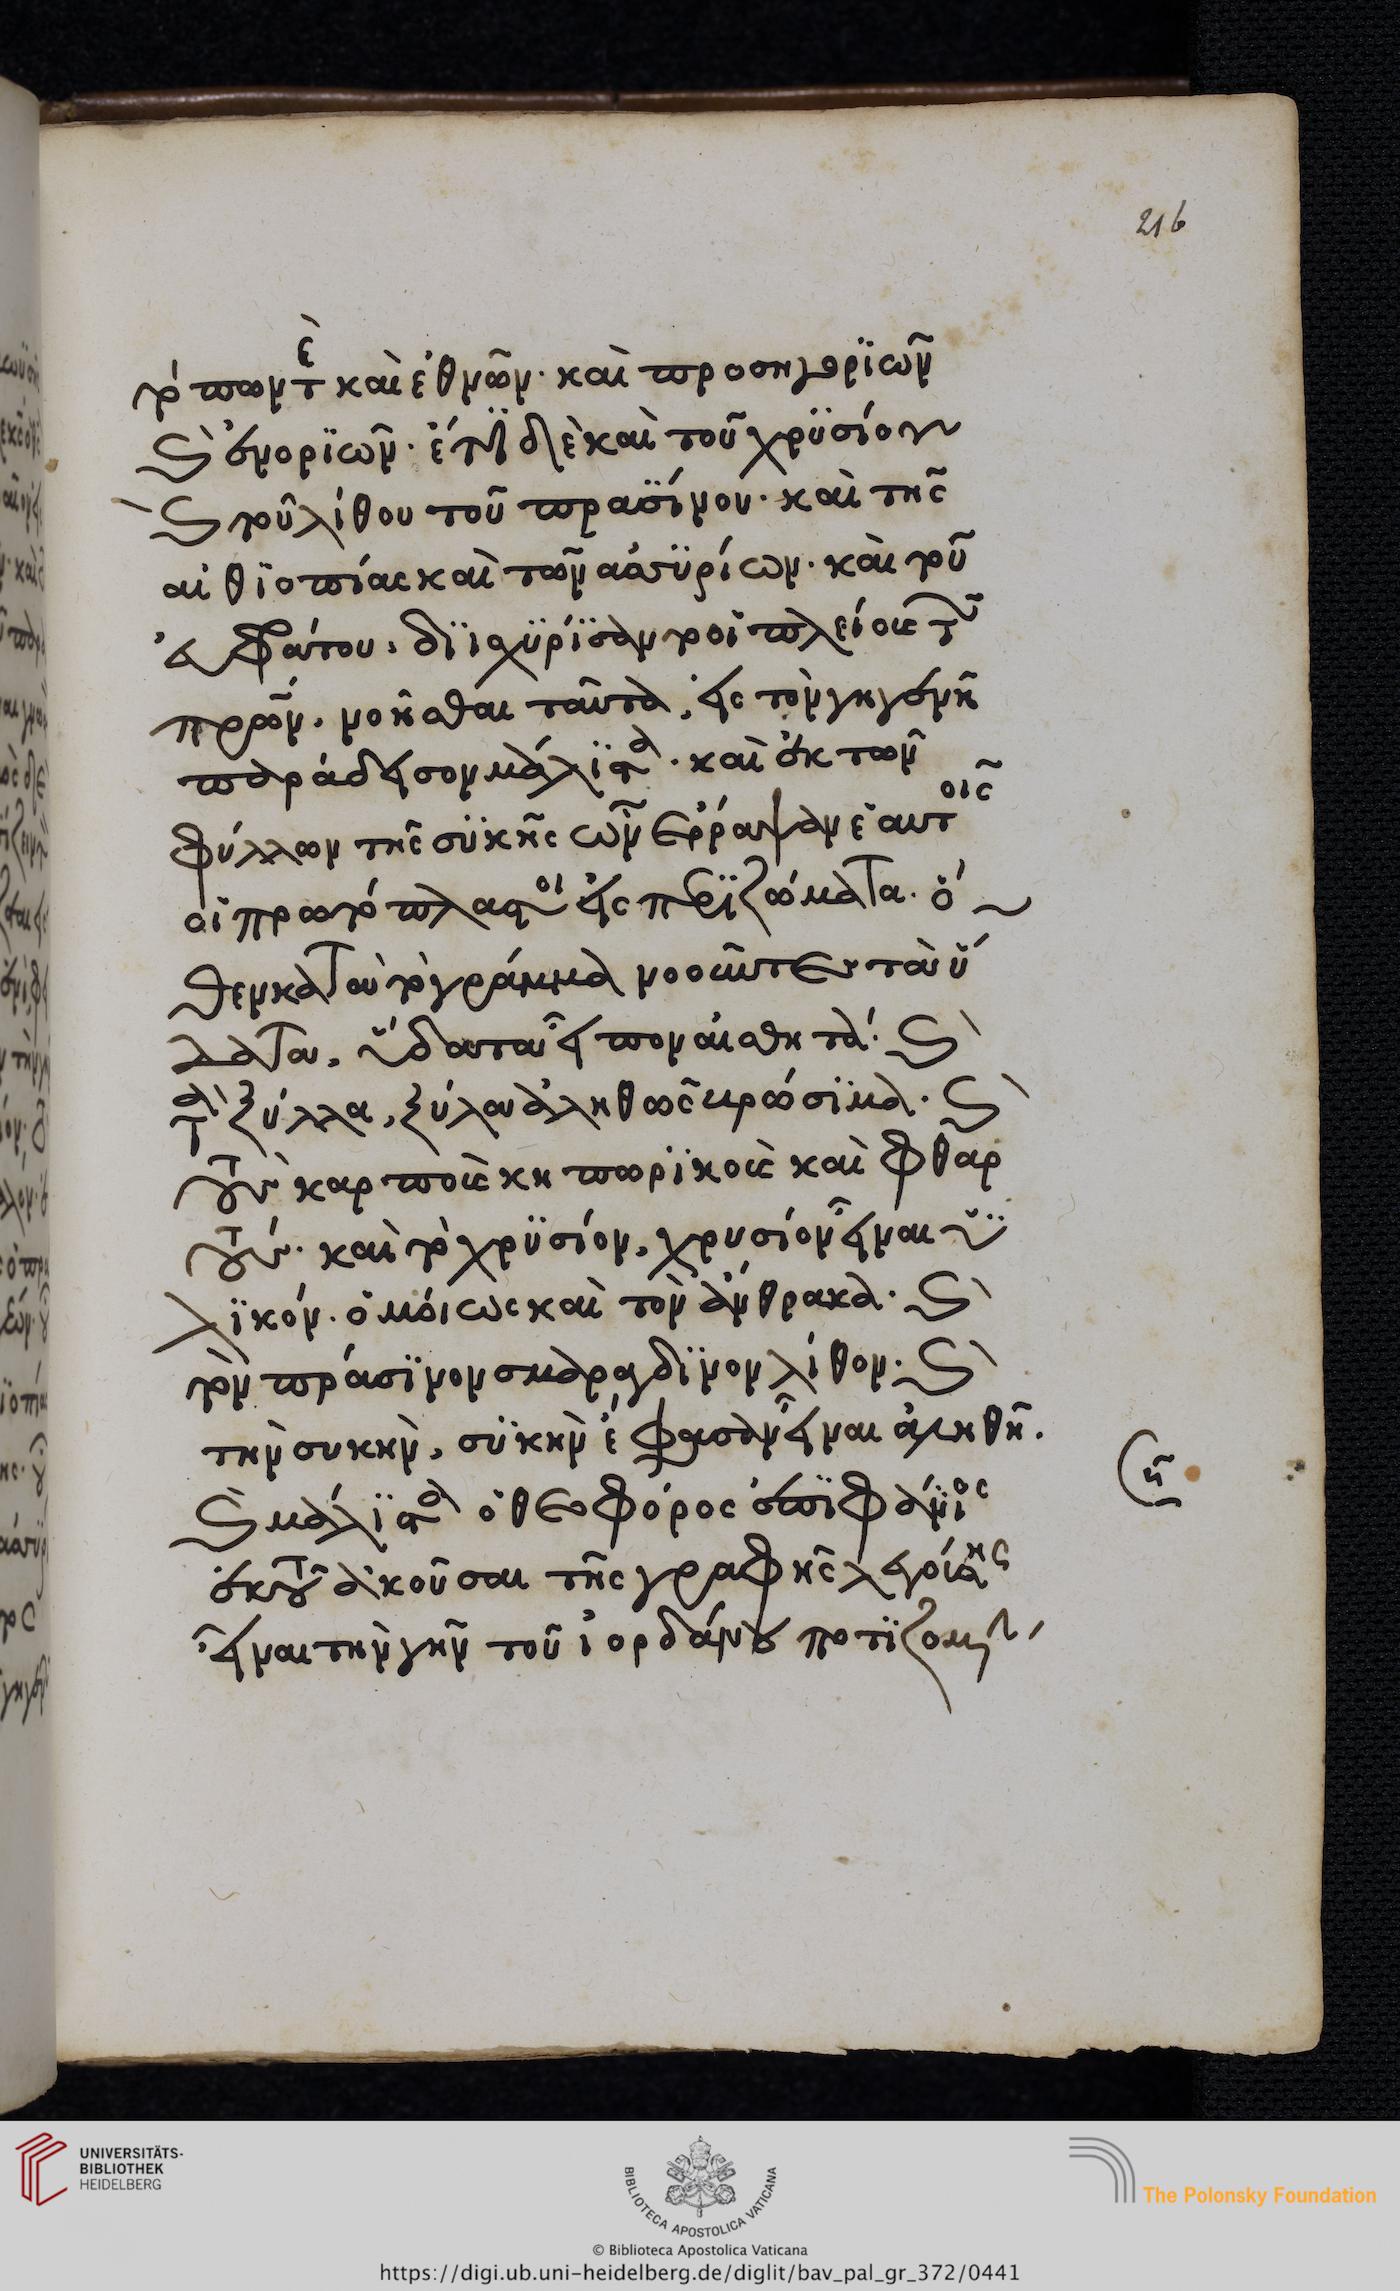 216
τόπων τὲ καὶ ἐθνῶν· καὶ προσηγοριῶν
καὶ ἐνοριῶν· ἔτι δὲ καὶ τοῦ χρυσίου
καὶ τοῦ λίθου τοῦ πρασίνου· καὶ τῆς
αἰθιοπίας καὶ τῶν ἀσυρίων· καὶ τοῦ
ἐφράτου, διϊσχυρίσαντο οἱ πλείους τῶν
πρων, νοεῖσθαι ταῦτα, εἰς τὸν γηγενῆ
παράδεισον μάλιστα· καὶ ἐκ τῶν
φύλλων τῆς συκῆς ὧν ἐρράψαν ἑαυτοῖς
οἱ πρωτόπλαστοι εἰς περιζώματα· ὅ
θεν κατὰ τὸ γράμμα νοοῦντες τὰ ὕ
δατα, ὕδατα εἶπον αἰσθητά· καὶ
τὰ ξύλλα, ξύλα ἀληθῶς τρώσιμα· καὶ
τοὺς καρποὺς κηπωρικοὺς καὶ φθαρ
τούς· καὶ τὸ χρυσίον, χρυσίον εἶναι ὑ
λικόν· ὁμοίως καὶ τὸν ἄνθρακα· καὶ
τὸν πράσινον σμαραγδινον λίθον· καὶ
τὴν συκὴν, συκὴν ἔφασαν εἶναι ἀληθῆ.
καὶ μάλιστα ὁ θεοφόρος ἐπιφάνιος
ἐκ τοῦ ἀκοῦσαι τῆς γραφῆς λεγούσης
εἶναι τὴν γῆν τοῦ ἰορδάνου ποτιζομέν
UNIVERSITÄTS-
BIBLIOTHEK
HEIDELBERG
BIBLIOTECA APOSTOLICA VATICANA
The Polonsky Foundation
© Biblioteca Apostolica Vaticana
https://digi.ub.uni-heidelberg.de/diglit/bav_pal_gr_372/0441